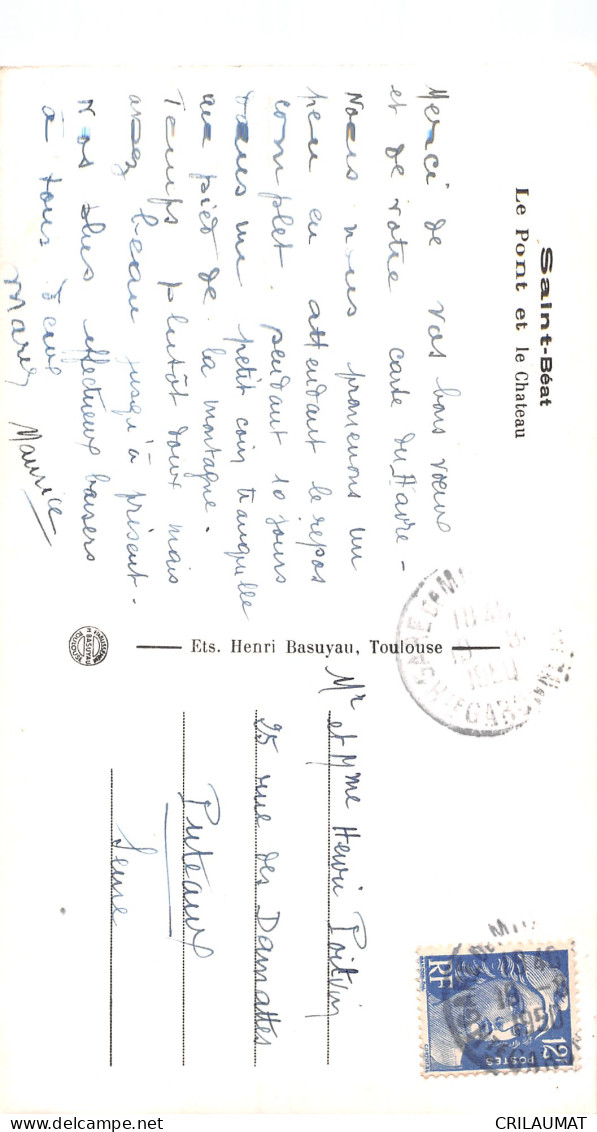 Saint-Béat
Le Pont et le Chateau
Merci de vos bons voeux
et de votre carte du Havre -
Nous nous promenons un
peu en attendant le repos
complet. pendant 10 jours
dans un petit coin tranquille
au pied de la montagne.
Temps plutôt doux mais
assez beau jusqu'à présent.
Nos plus affectueux baisers
à tous deux
Maurice
Ets. Henri Basuyau, Toulouse
Mr et Mme Henri Poitvin
25 rue des Damattes
Puteaux
Seine
RF
POSTES
12F
18 -8
1950
CRILAUMAT